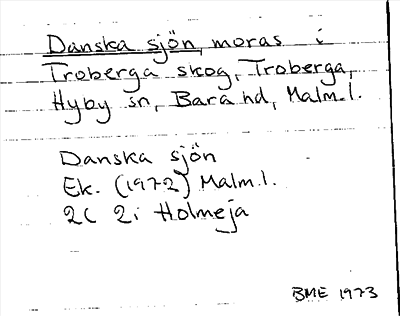 Danska sjön, moras i
Troberga skog, Troberga,
Hyby sn, Bara hd, Malm.l.
Danska sjön
Ek. (1972) Malm.l.
2C 2i Holmeja
BME 1973